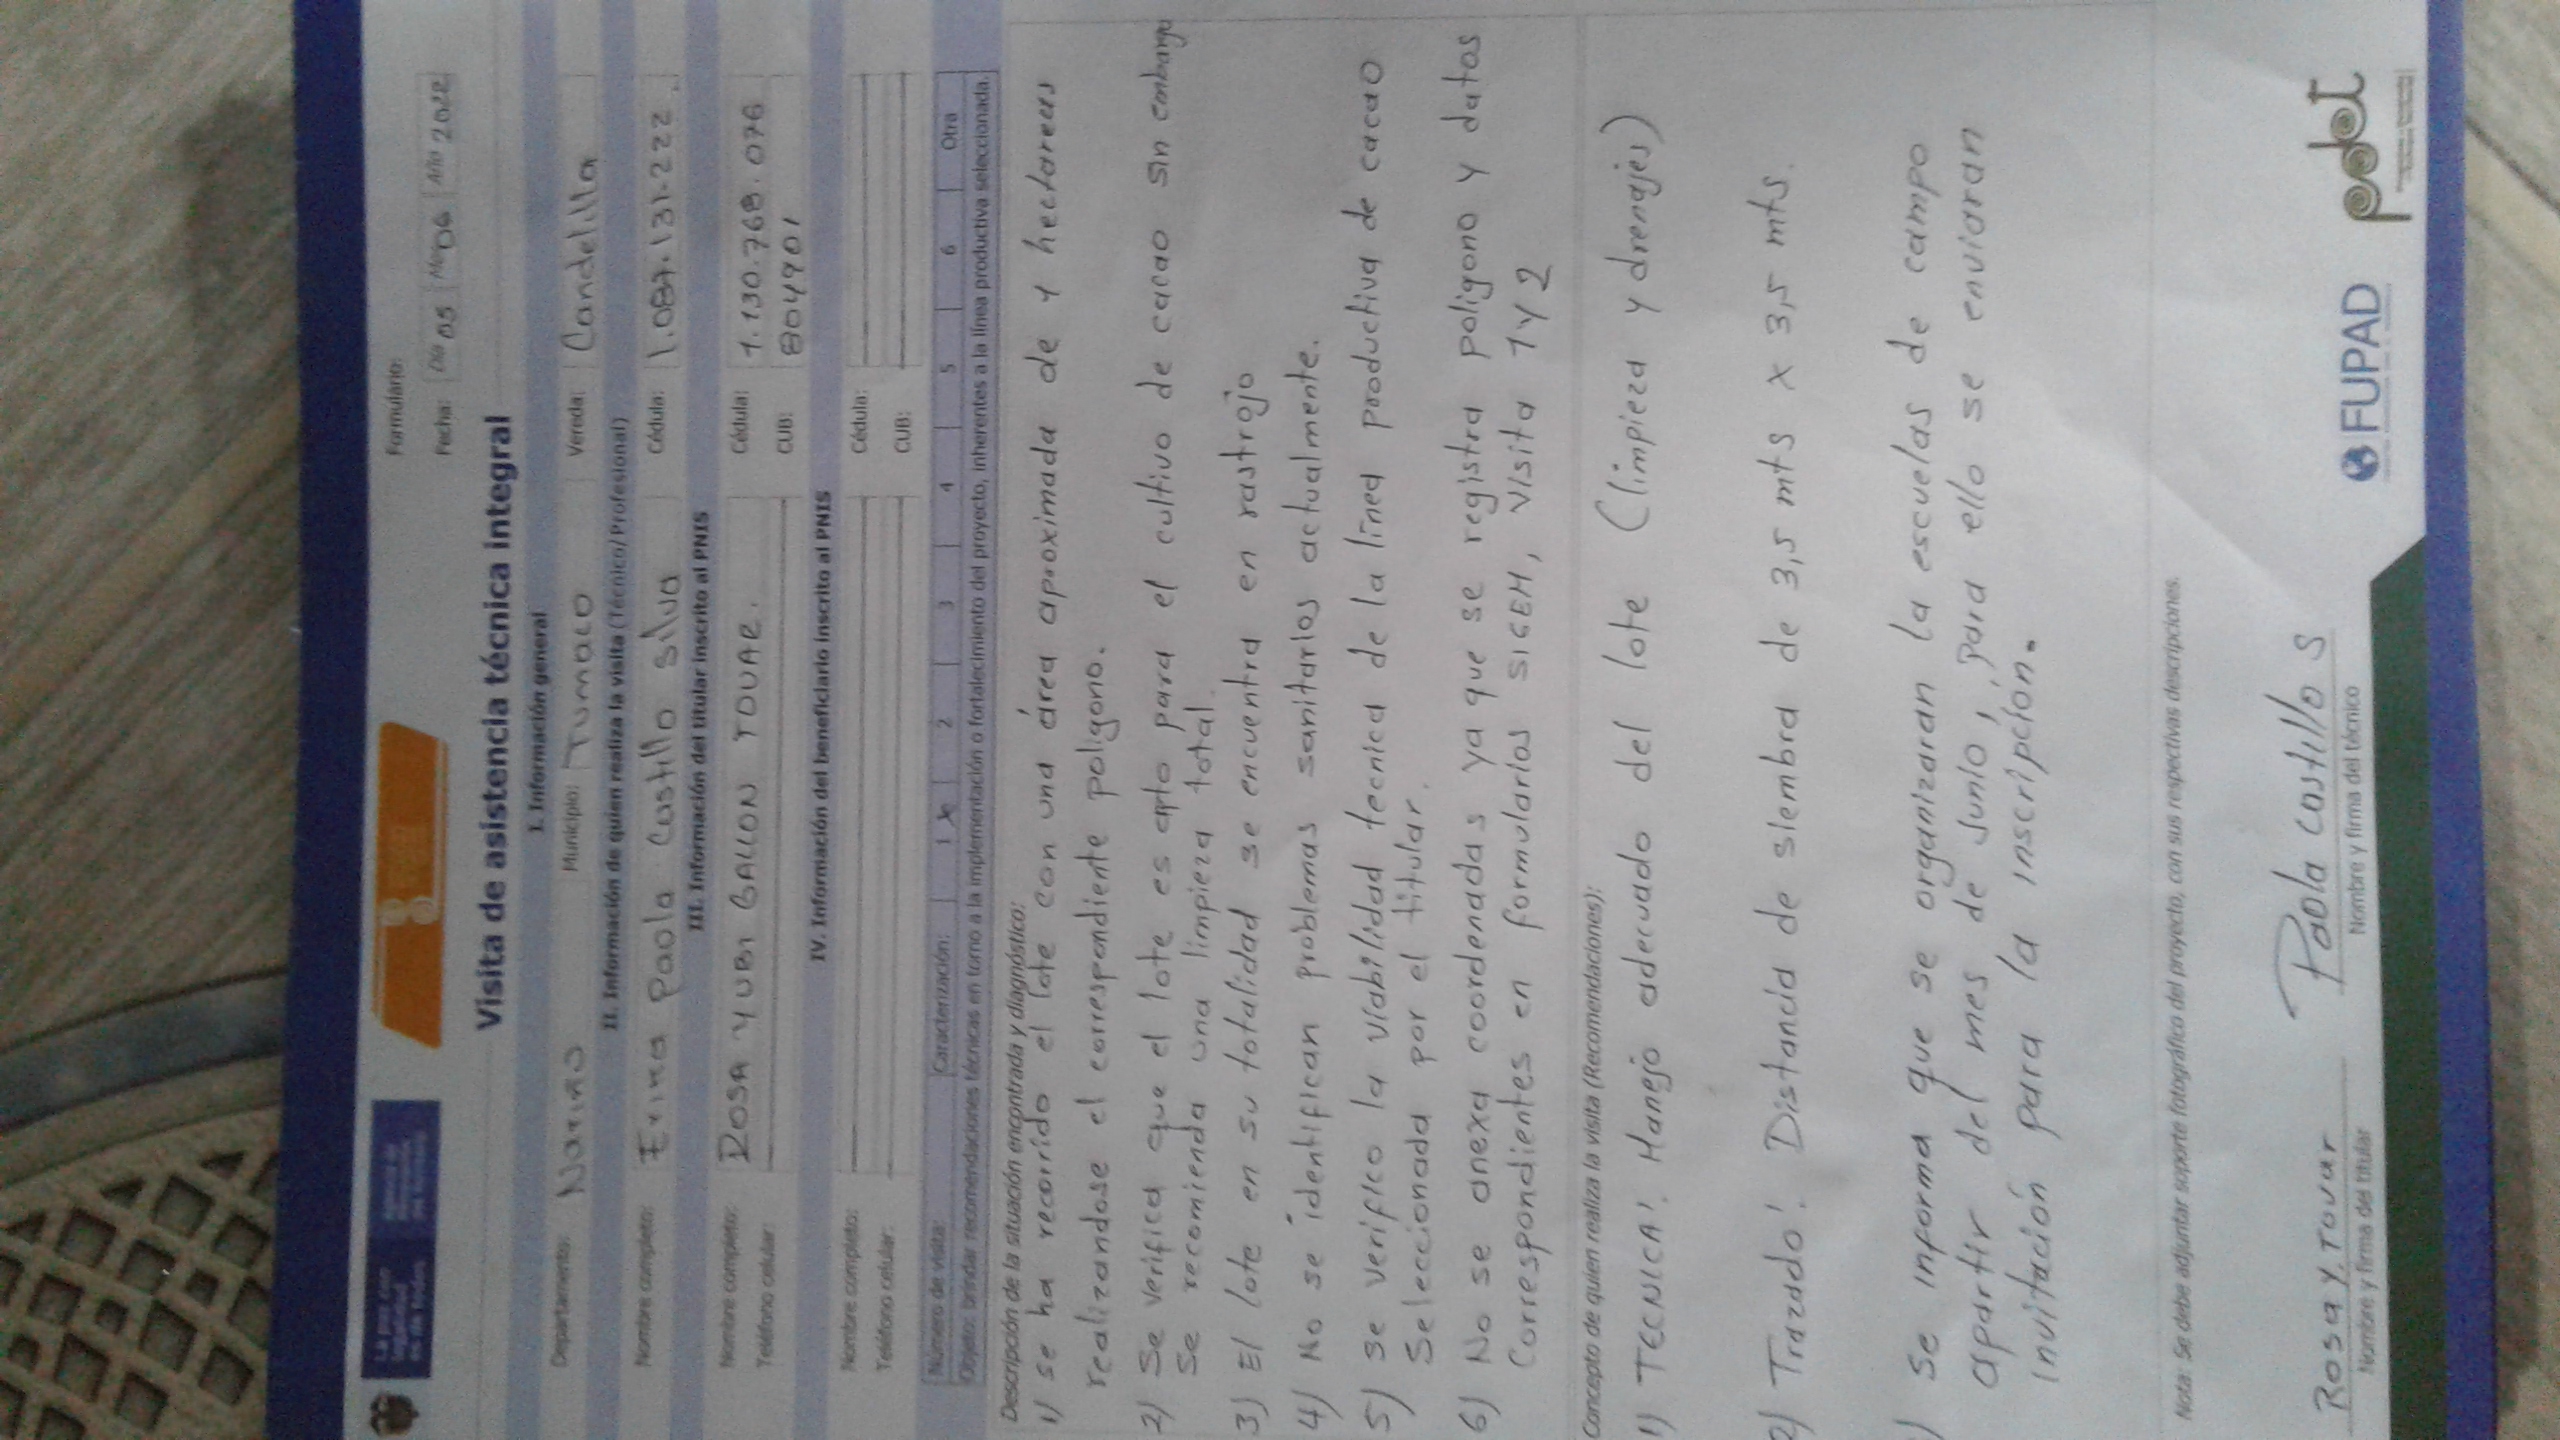 La paz con
legalidad
es de todos
Formulario:
Fecha: Día 05 Mes 06 Año 2022
Visita de asistencia técnica integral
I. Información general
Departamento: Nariño Municipio: Tumaco Vereda: Candelilla
II. Información de quien realiza la visita (Técnico/Profesional)
Nombre completo: Erika Paola Castillo Silva Cédula: 1.087.131.222
III. Información del titular inscrito al PNIS
Nombre completo: ROSA YUBI GALLON TOVAR. Cédula: 1.130.768.076
Teléfono celular: CUB: 804901
IV. Información del beneficiario inscrito al PNIS
Nombre completo: Cédula:
Teléfono celular: CUB:
Número de visita: Caracterización: 1 x 2 3 4 5 6 Otra
Objeto: brindar recomendaciones técnicas en torno a la implementación o fortalecimiento del proyecto, inherentes a la línea productiva seleccionada.
Descripción de la situación encontrada y diagnóstico:
1) se ha recorrido el lote con una área aproximada de Y hectareas
realizandose el correspondiente poligono.
2) Se verifica que el lote es apto para el cultivo de cacao sin embargo
se recomienda una limpieza total.
3) El lote en su totalidad se encuentra en rastrojo
4) No se identifican problemas sanitarios actualmente.
5) se verifico la viabilidad tecnica de la linea productiva de cacao
Seleccionada por el titular.
6) No se anexa coordenadas ya que se registra poligono y datos
Correspondientes en formularios SIGEM, visita 1 Y 2
Concepto de quien realiza la visita (Recomendaciones):
1) TECNICA: Manejo adecuado del lote (limpieza y drenajes)
2) Trazado: Distancia de siembra de 3,5 mts x 3,5 mts.
) Se informa que se organizaran la escuelas de campo
apartir del mes de Junio, para ello se enviaran
invitación para la inscripcion.
Nota: Se debe adjuntar soporte fotográfico del proyecto, con sus respectivas descripciones.
Rosa Y. Tovar Paola Castillo S
Nombre y firma del titular Nombre y firma del técnico
FUPAD pdet